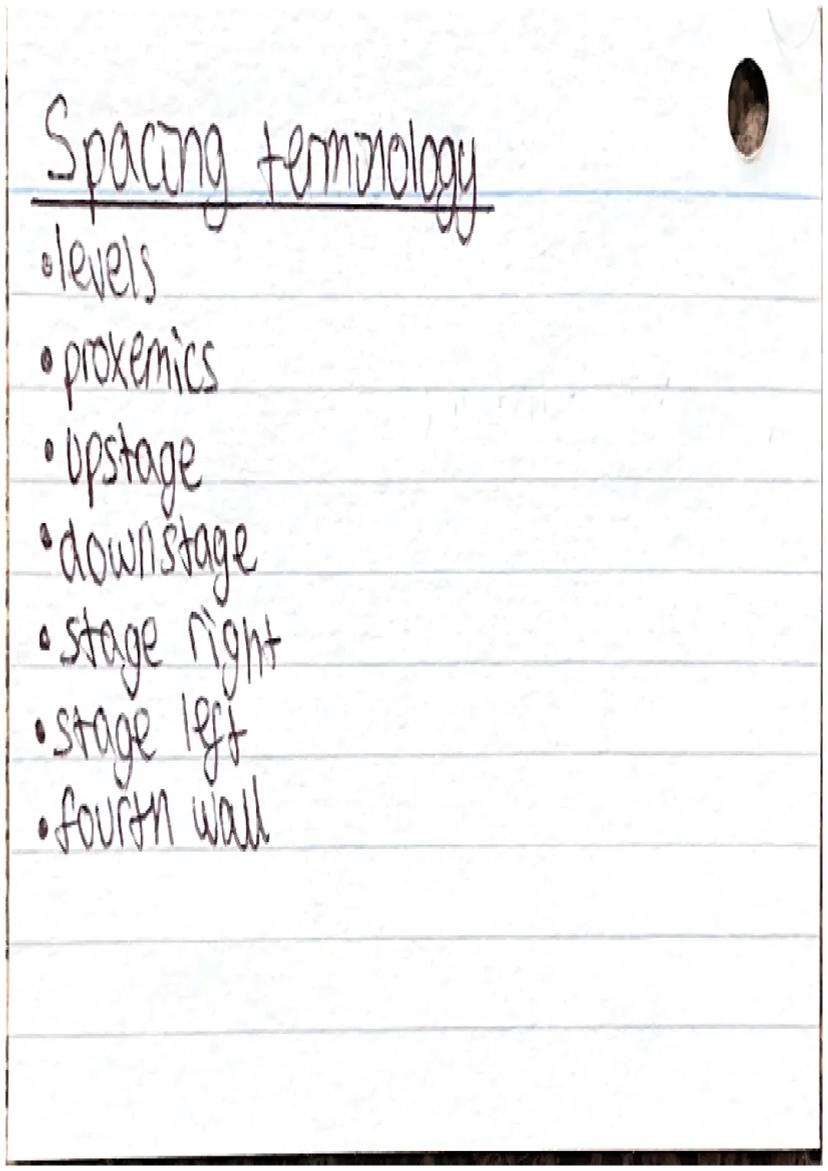 Spacing terminology
•levels
•proxemics
•upstage
•downstage
•stage right
•stage left
•fourth wall